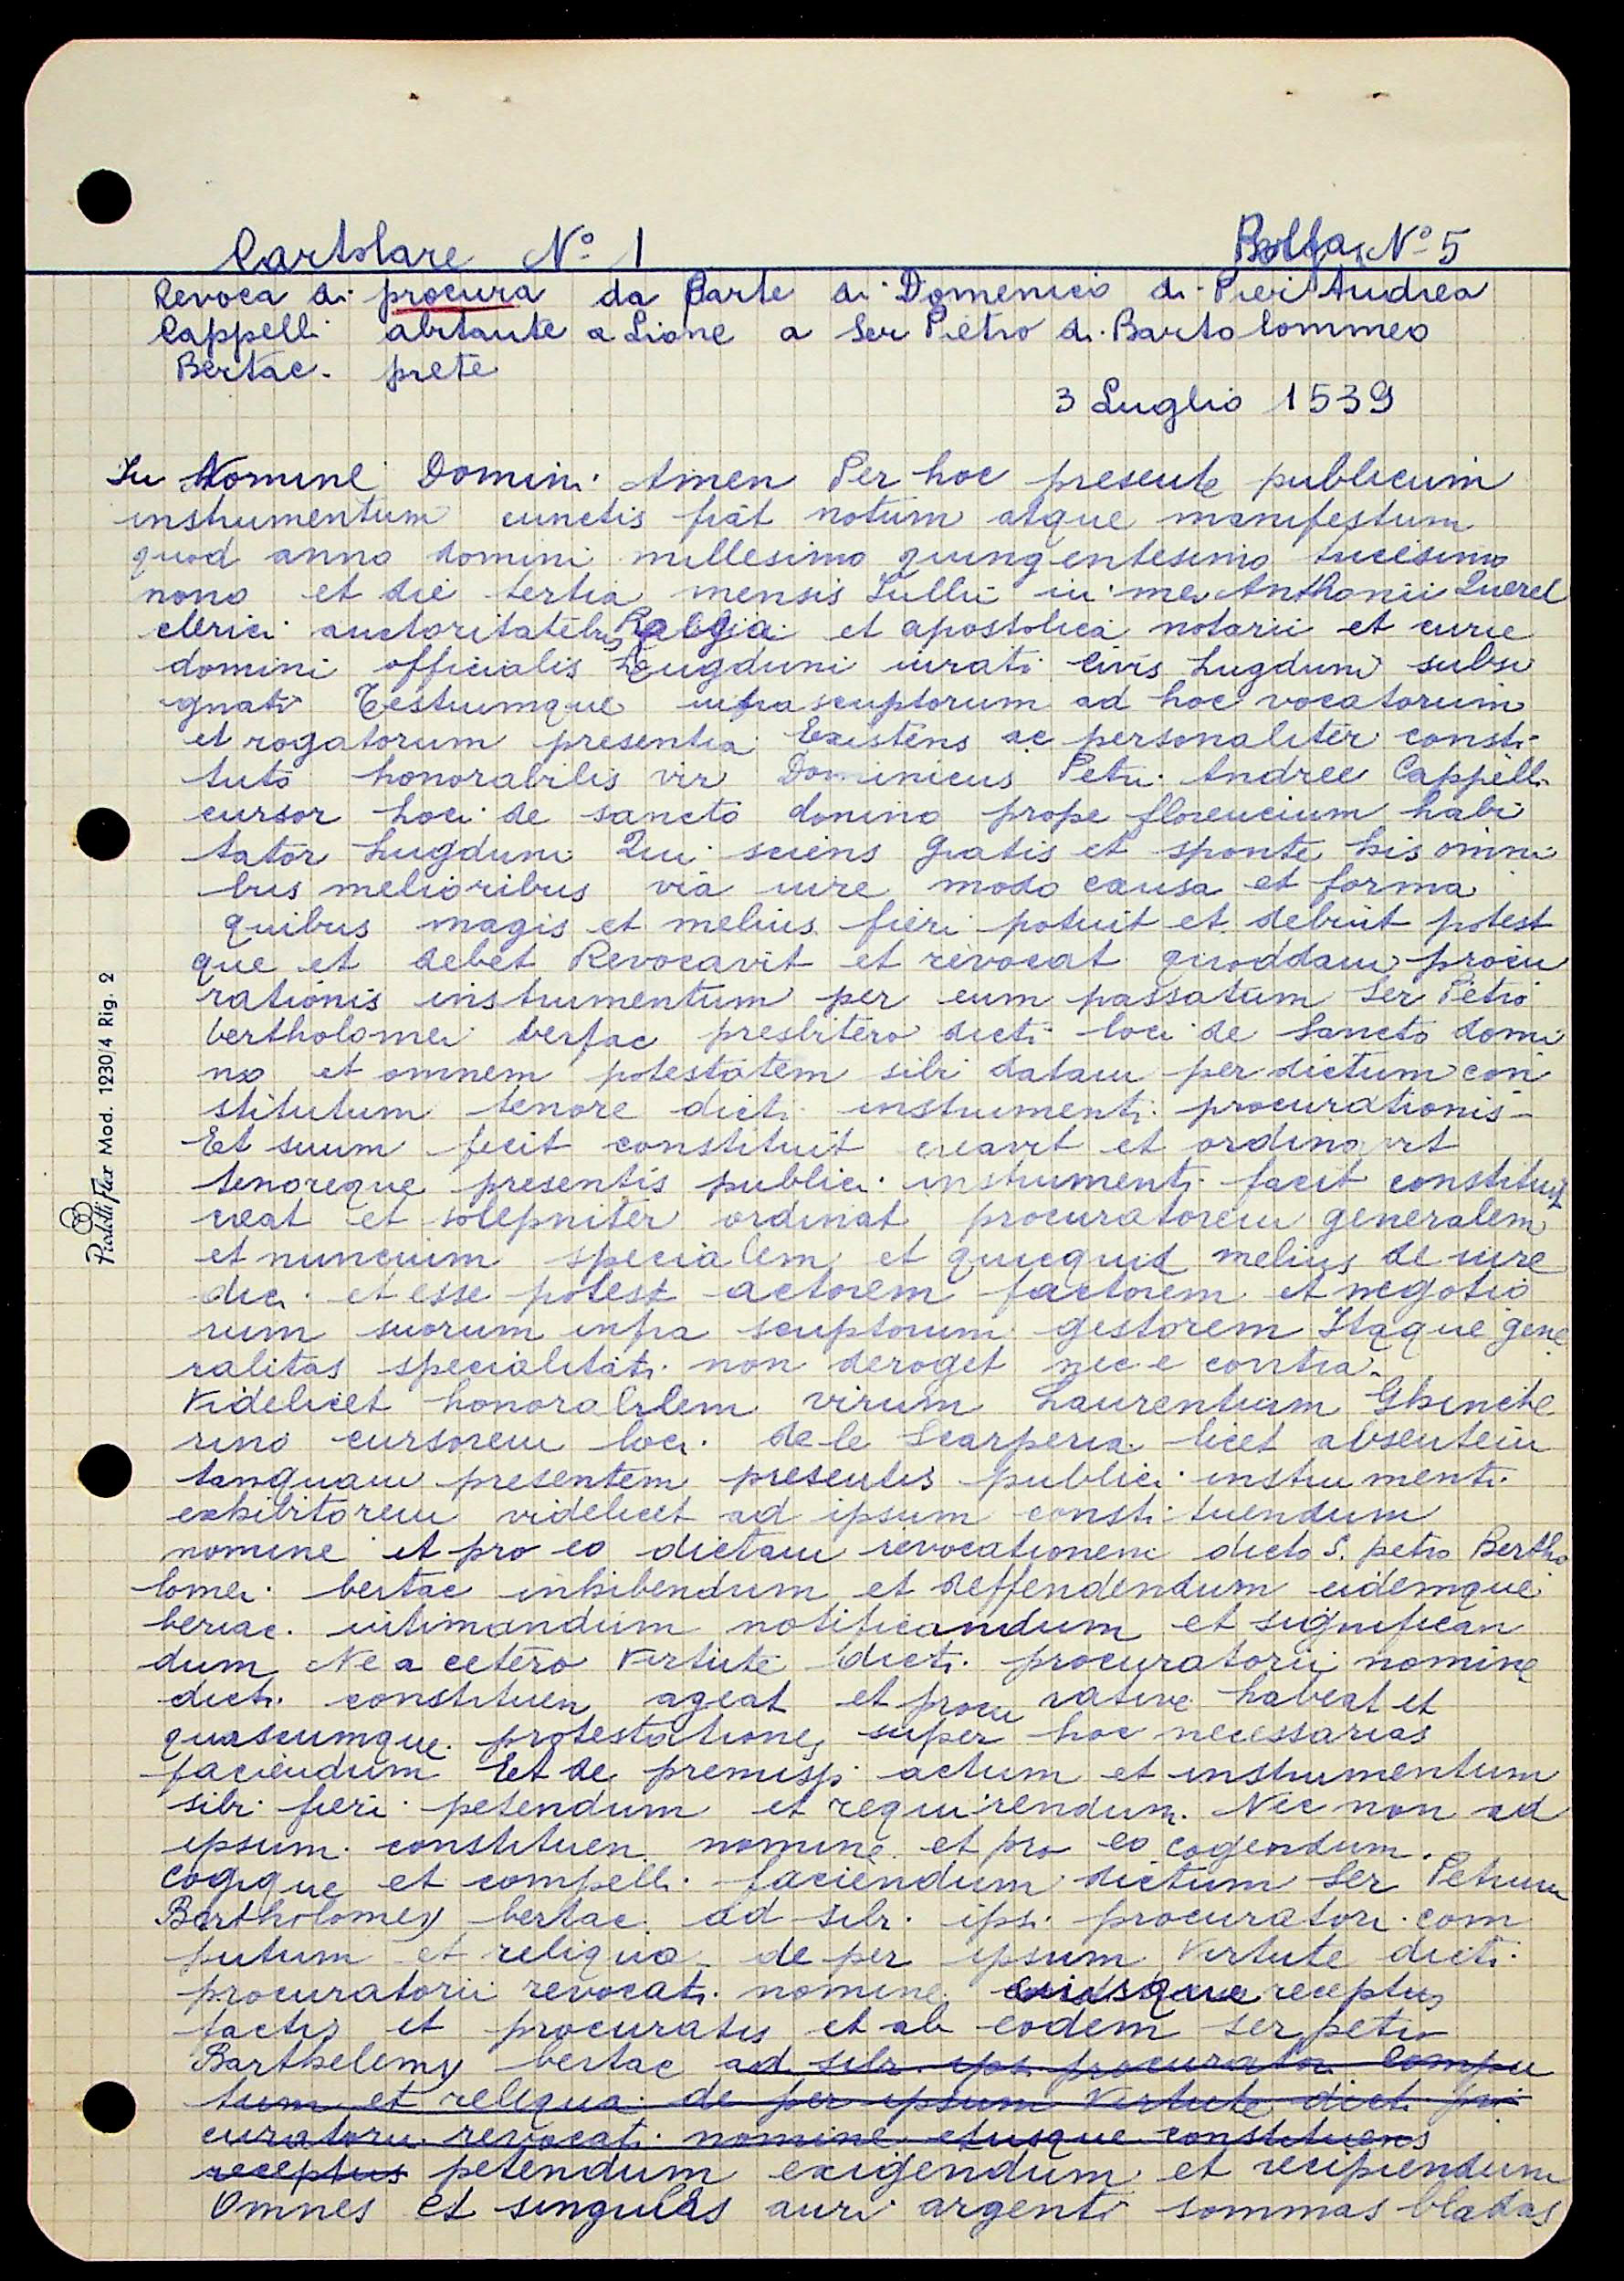 Cartolare N° 1 Bolfa N° 5
Revoca di procura da parte di Domenico di Pier Andrea
Cappelli abitante a Lione a Ser Pietro di Bartolommeo
Bertac. prete
3 Luglio 1539
In Nomine Domini Amen Per hoc presente publicum
instrumentum cunctis fiat notum atque manifestum
quod anno domini millesimo quingentesimo tricesimo
nono et die tertia mensis Jullii in mei Anthonii Querel
clerici auctoritatebus Regia et apostolica notarii et curie
domini officialis Lugduni iurati civis Lugduni subsi
gnati Testiumque infrascriptorum ad hoc vocatorum
et rogatorum presentia Existens ac personaliter consti-
tuto honorabilis vir Dominicus Petri Andree Cappelli
cursor loci de sancto donino prope florencium habi
tator Lugduni Qui sciens gratis et sponte his omni
bus melioribus via iure modo causa et forma
quibus magis et melius fieri potuit et debuit potest
que et debet Revocavit et revocat quoddam procu
rationis instrumentum per eum passatum Ser Petro
bertholomei bertac presbitero dicti loci de Sancto domi
no et omnem potestatem sibi datam per dictum con
stitutum tenore dicti instrumenti procurationis-
Et suum fecit constituit creavit et ordinavit
tenoreque presentis publici instrumenti facit constituit
creat et solepniter ordinat procuratorem generalem
et nuncium specialem et quicquid melius de iure
dici et esse potest actorem factorem et negotio
rum suorum infra scriptorum gestorem Itaque gene
ralitas specialitati non deroget nec e contra.
Videlicet honorabilem virum Laurentium Ghinche
rino cursorem loci de le Scarperia licet absentem
tanquam presentem presentis publici instrumenti
exhibitorem videlicet ad ipsum constituendum
nomine et pro eo dictam revocationem dicto S. petro Bertho
lomei bertac inhibendum et deffendendum eidemque
bertac. intimandum notificandum et significan
dum Ne a cetero Virtute dicti procuratorii nomine
dicti constituen ageat et procu rative habeat et
quascumque protestationes super hoc necessarias
faciendum Et de premissi actum et instrumentum
sibi fieri petendum et requirendum. Nec non ad
ipsum constituen nomine et pro eo cogendum.
cogique et compelli faciendum dictum Ser Petrum
Bartholomey bertac ad sibi ipsi procuratori com
putum et reliqua de per ipsum Virtute dicti
procuratorii revocati nomine receptus
factis et procuratis et ab eodem ser petro
Barthelemy bertac ad sibi ipsi procuratori compu
tum et reliqua de per ipsum Virtute dicti pro
curatoru revocati nomine eiusque constituens
receptus petendum exigendum et recipiendum
Omnes et singulas auri argenti sommas bladas
PrinottiFlex Mod. 1230/4 Rig. 2